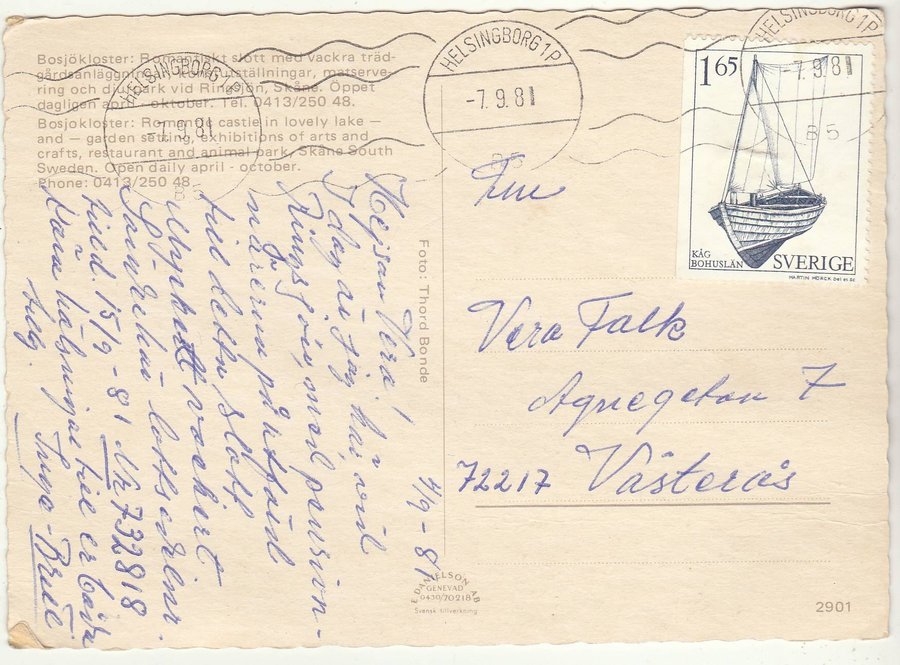 Bosjökloster: Romantiskt slott med vackra träd-
gårdsanläggningar, konstutställningar, matserve-
ring och djurpark vid Ringsjön, Skåne. Öppet
dagligen april - oktober. Tel. 0413/250 48.
Bosjokloster: Romantic castle in lovely lake —
and — garden setting, exhibitions of arts and
crafts, restaurant and animal park, Skåne South
Sweden. Open daily april - october.
Phone: 0413/250 48
HELSINGBORG 1 P
-7.9.81
HELSINGBORG 1 P
-7.9.81
HELSINGBORG 1 P
-7.9.81
165
KÅG
BOHUSLÄN
SVERIGE
MARTIN MÖRCK del et sc
4/9-81
Hejsan Vera!
I dag är jag här vid
Ringsjön, med pension-
närerna på utfärd
till detta slott
vackert
lotts
15/9-81 Nr 732818
hälsningar till er båda
Inga-Britt
Foto: Thord Bonde
Fru
Vera Falk
Agnegatan 7
72217 Västerås
E. DANIELSON AB
GENEVAD
0430/70218
Svensk tillverkning
2901